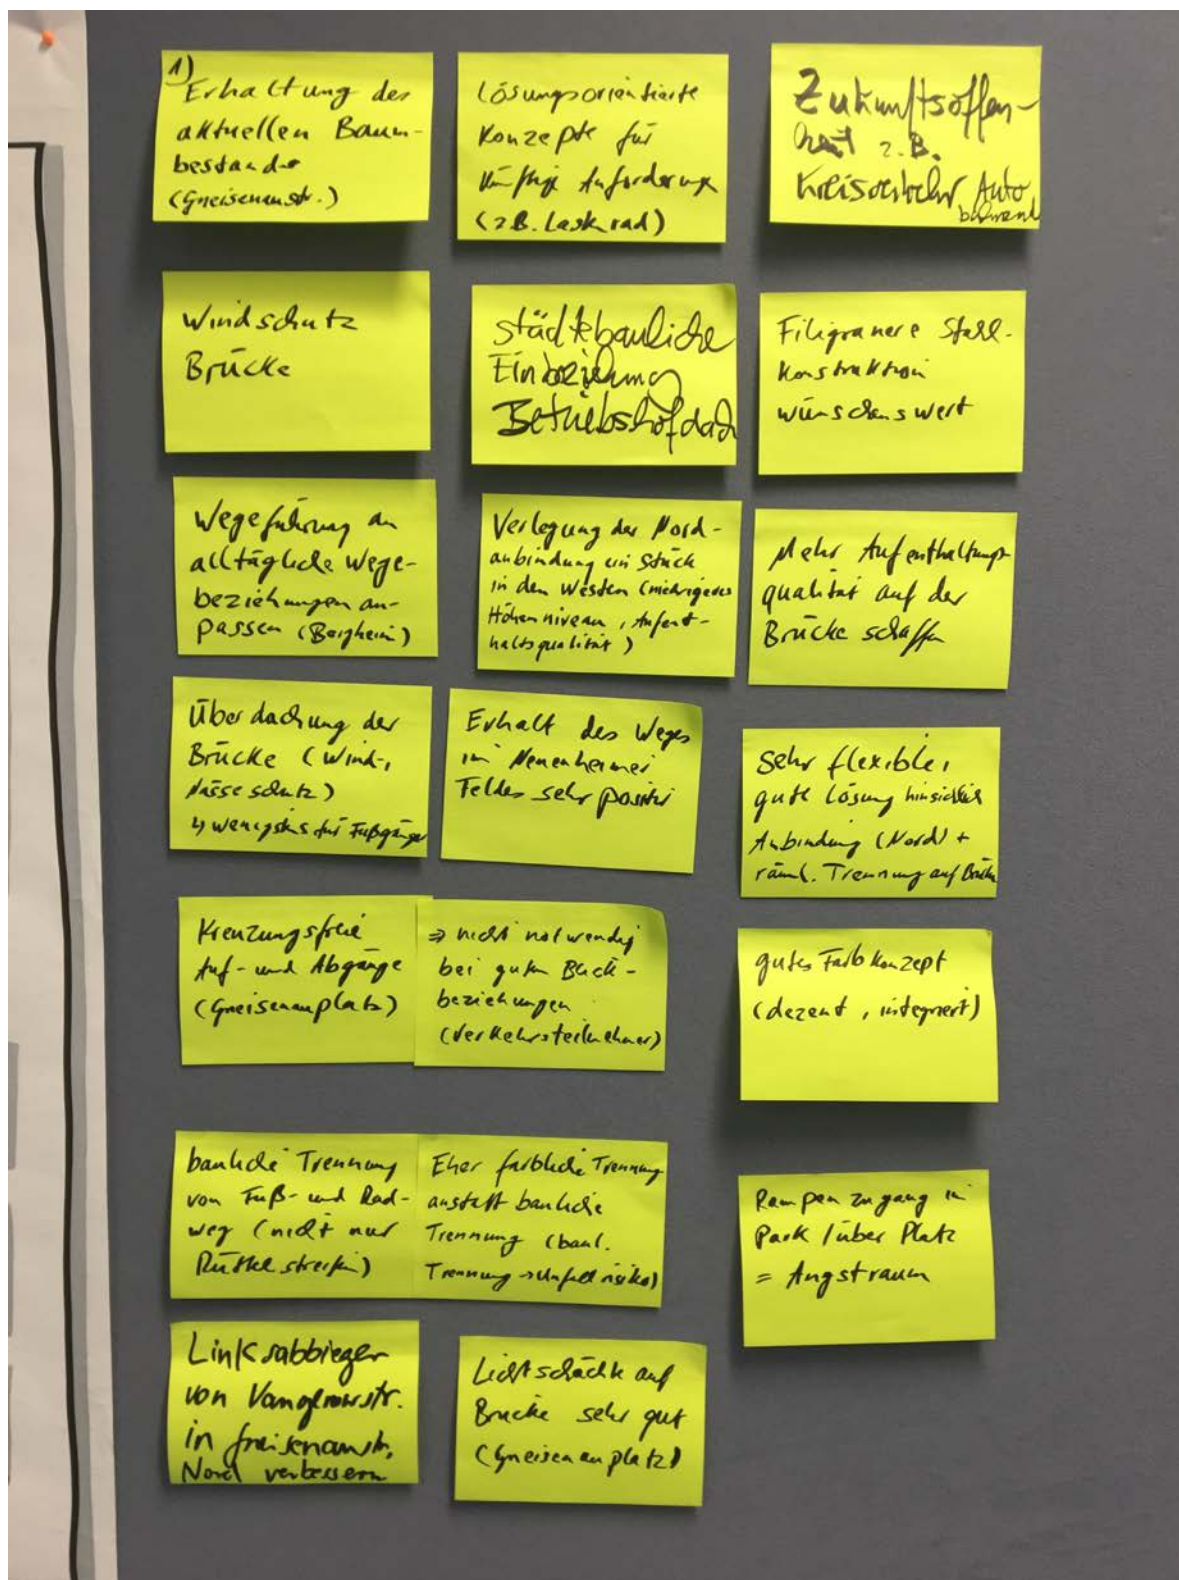 1)
Erhaltung des
aktuellen Baum-
bestandes
(Gneisenaustr.)
Lösungsorientierte
Konzepte für
künftige Anforderungen
(z.B. Lastenrad)
Zukunftsoffen-
heit z.B.
Kreisverkehr Auto
Windschutz
Brücke
städtebauliche
Einbeziehung
Betriebshofdach
Filigranere Stahl-
konstruktion
wünschenswert
Wegeführung an
alltägliche Wege-
beziehungen an-
passen (Bergheim)
Verlegung der Nord-
anbindung ein Stück
in den Westen (niedrigeres
Höhenniveau, Aufent-
haltsqualität)
Mehr Aufenthaltungs-
qualität auf der
Brücke schaffen
Überdachung der
Brücke (Wind-,
Nässeschutz)
↳ wenigstens für Fußgänger
Erhalt des Weges
im Neuenheimer
Feldes sehr positiv
Sehr flexible,
gute Lösung hinsichtlich
Anbindung (Nord) +
räuml. Trennung auf Brücke
Kreuzungsfreie
Auf- und Abgänge
(Gneisenauplatz)
⇒ nicht notwendig
bei guten Blick-
beziehungen
(Verkehrsteilnehmer)
gutes Farbkonzept
(dezent, integriert)
bauliche Trennung
von Fuß- und Rad-
weg (nicht nur
Rüttelstreifen)
Eher farbliche Trennung
anstatt bauliche
Trennung (baul.
Trennung → Unfallrisiko)
Rampenzugang in
Park / über Platz
= Angstraum
Linksabbieger
von Vangerowstr.
in Gneisenaustr.
Nord verbessern
Lichtschächte auf
Brücke sehr gut
(Gneisenauplatz)